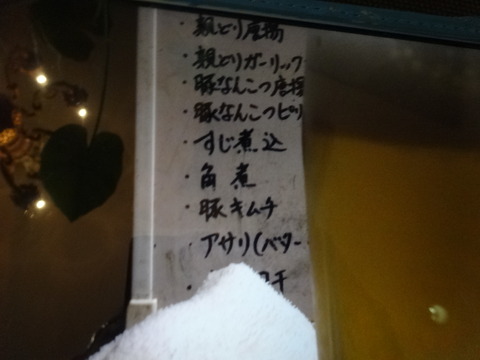 ・親とり唐揚
・親とりガーリック
・豚なんこつ唐揚
・豚なんこつピリ
・すじ煮込
・角煮
・豚キムチ
・アサリ(バター
干